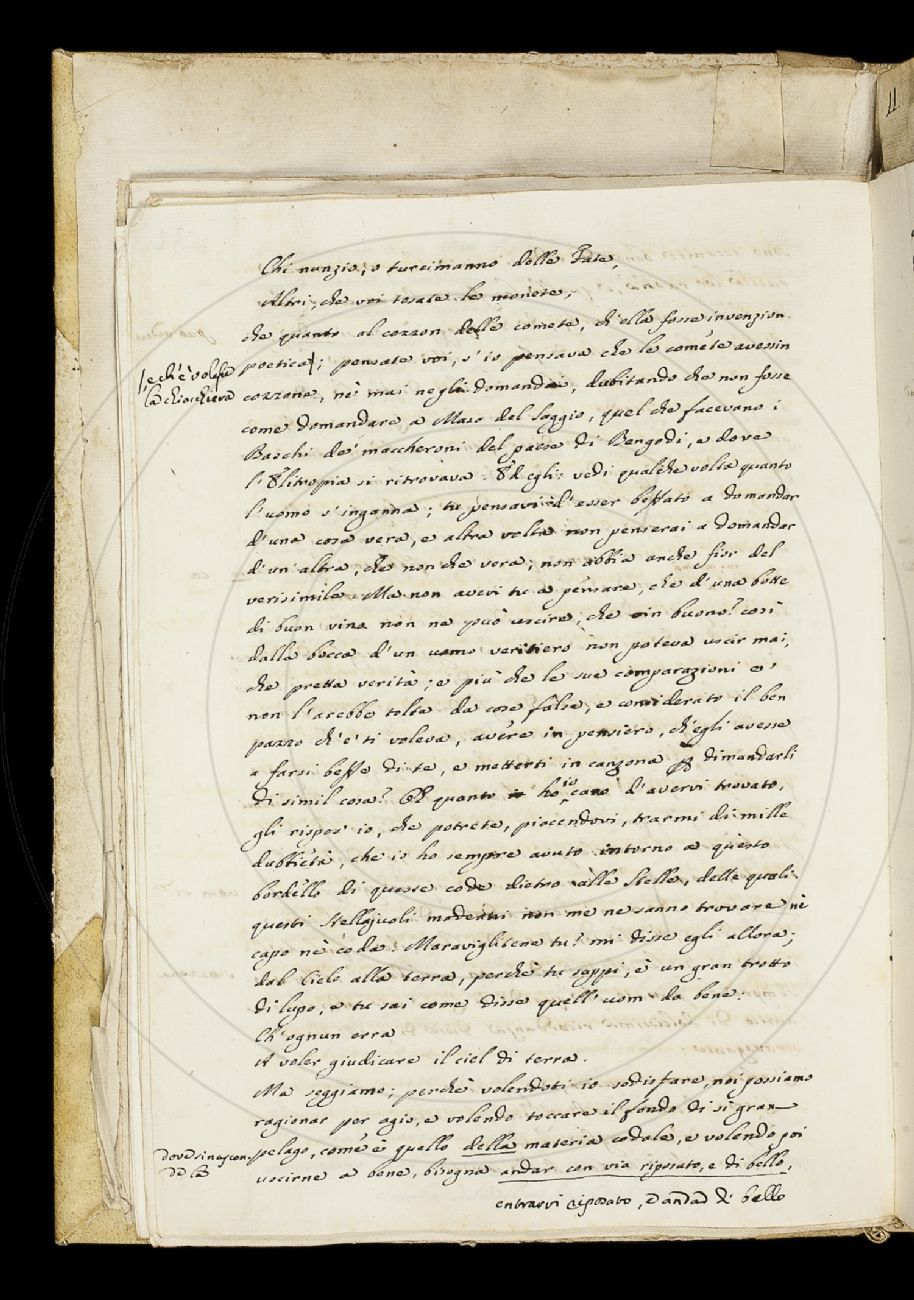 Chi nunzio, o turcimanno delle Fate,
Altri, che voi tosate le monete;
che quanto al cozzon delle comete, ch'ella fosse invenzion
poetica; pensate voi, s'io pensava che le comete avessin
e ch'è volesse
la chiacchiera
cozzone, nè mai negli domandai, dubitando che non fosse
come domandare a Maso del Saggio, quel che facevano i
Baschi de' maccheroni del paese di Bengodi, e dove
l'Elitropia si ritrovava. Ed egli: vedi qualche volta quanto
l'uomo s'inganna; tu pensavi d'esser beffato a domandar
d'una cosa vera, e altra volta non penserai a domandar
d'un'altra, che non che vera; non abbia anche fior del
verisimile. Ma non avevi tu a pensare, che d'una botte
di buon vino non ne può uscire, che vin buono? così
dalla bocca d'un uomo veritiero non poteva uscir mai,
che pretta verità; e più che le sue comparazioni e'
non l'arebbe tolte da cose false, e considerato il ben
pazzo ch'e' ti voleva, avere in pensiero, ch'egli avesse
a farsi beffe di te, e metterti in canzona dimandarli
di simil cosa? Oh quanto ho io caro d'avervi trovato,
gli rispos' io, che potrete, piacendovi, trarmi di mille
dubbietà, che io ho sempre avuto intorno a questo
bordello di queste code dietro alle stelle, delle quali
questi stellajuoli moderni non me ne sanno trovare nè
capo nè coda. Maraviglitene tu? mi disse egli allora;
dal Cielo alla terra, perchè tu sappi, è un gran trotto
di lupo, e tu sai come disse quell'uom da bene:
Ch'ognun erra
A voler giudicare il ciel di terra.
Ma seggiamo; perchè volendoti io sodisfare, noi possiamo
ragionar per agio, e volendo toccare il fondo di sì gran
pelago, com'è quello della materia codale, e volendo poi
uscirne a bene, bisogna andar con via riposato, e di bello,
entrarvi riposato, e andar di bello